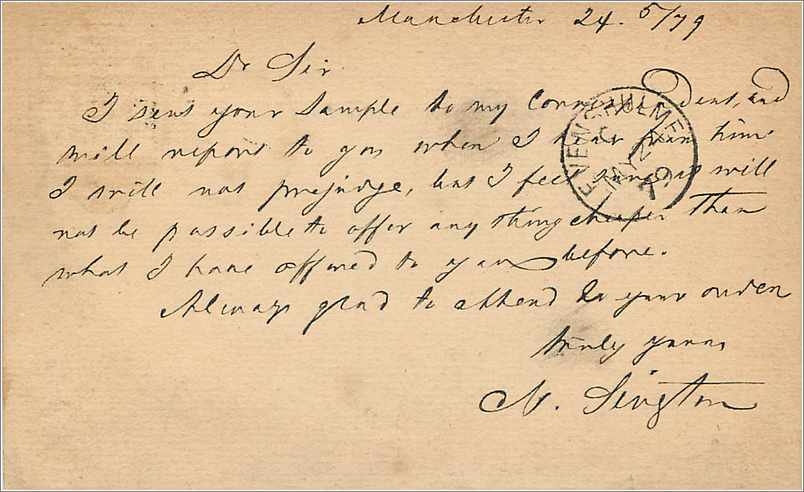 Manchester 24. 5/79
Dr Sir
I sent your Sample to my Correspondent, and
will report to you when I hear from him
I will not prejudge, but I feel sure it will
not be possible to offer anything cheaper than
what I have offered to you before.
Always glad to attend to your orders
truly yours
M. Sington
NEWSHOLME